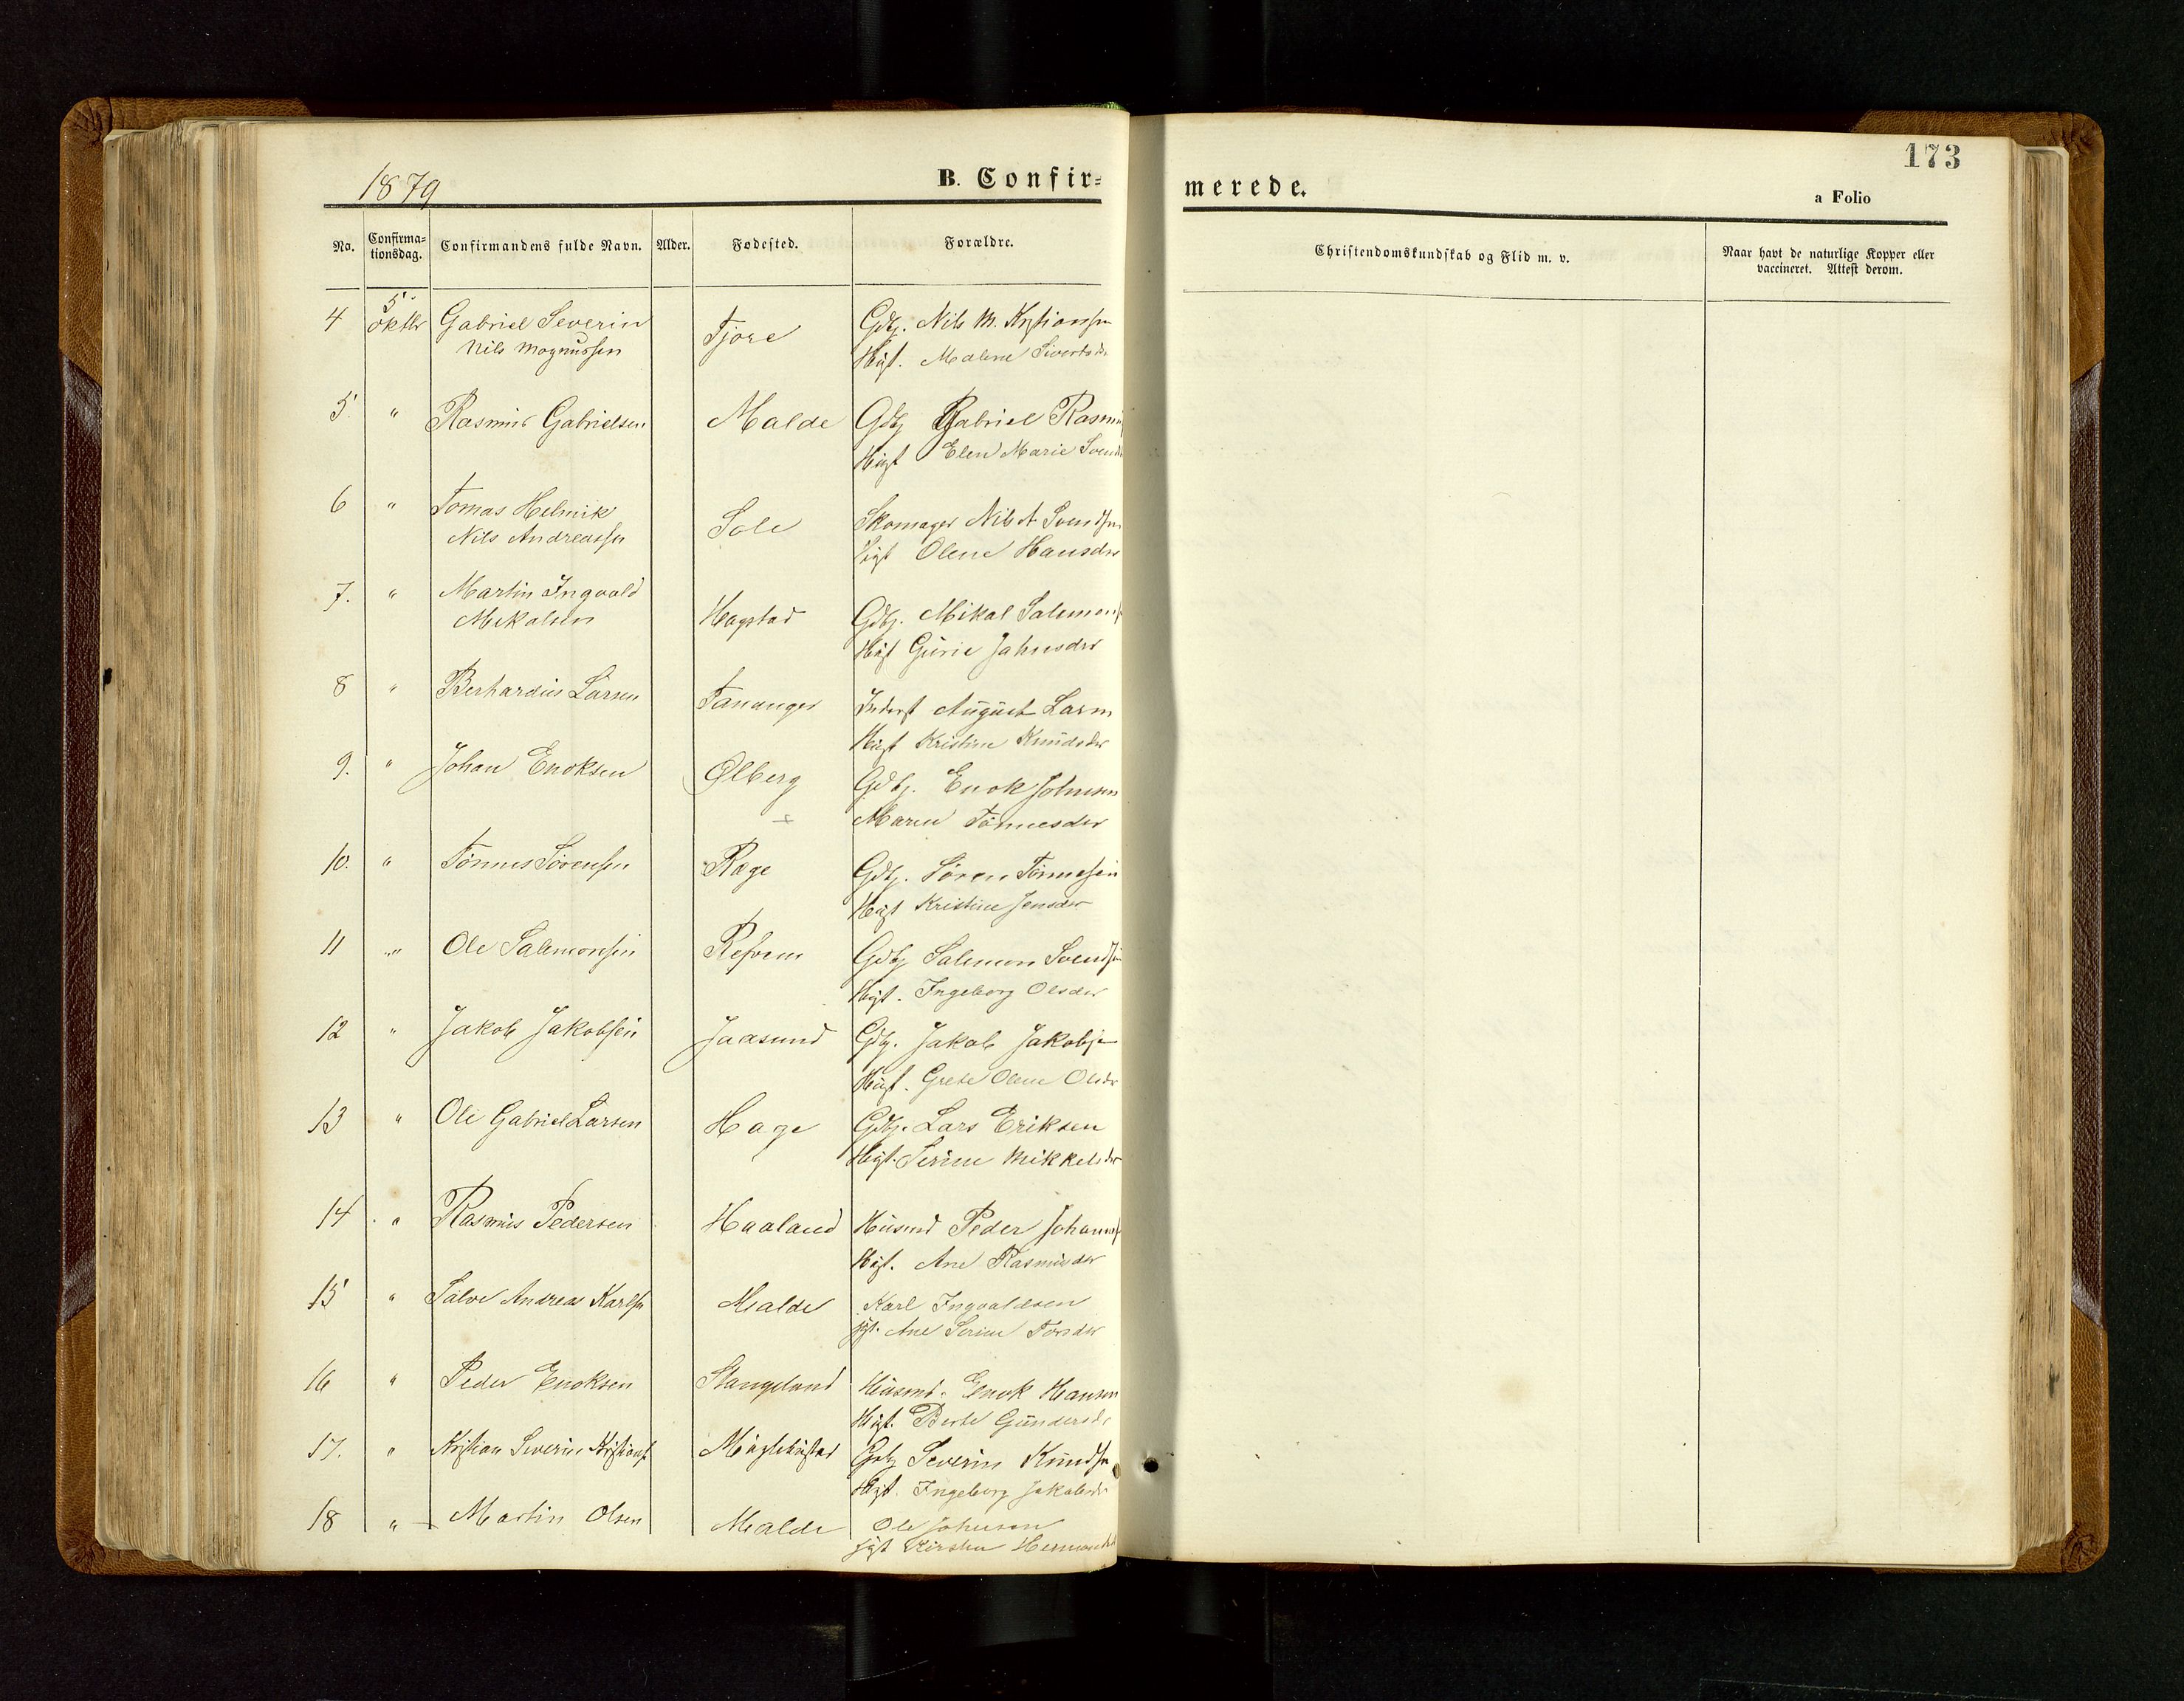 173
1879
B. Confir=
merede.
a Folio
No.
Confirma=
tionsdag.
Confirmandens fulde Navn.
Alder.
Fødested.
Forældre.
Christendomskundskab og Flid m. v.
Naar havt de naturlige Kopper eller
vaccineret. Attest derom.
4 5 Oktbr Gabriel Severin Tjore Gdbj. Nils M.
Nils Magnussen Hugt. Malene
5. " Rasmus Gabrielsen Malde Gdbj Gabriel
Hugt Elen Marie
6 " Tomas Helmik Sole Skomager Nils A Svendsen
Nils Andreassen Hugt Olene Hansdr
7. " Martin Ingvald Hagstad Gdbj. Mikal
Mikalsen Hugt Gurie Jahnsdr
8 " Berhardus Larsen Tananger Inderst August Larsen
Hugt Kristine Knudsdr
9. " Johan Enoksen Ølberg Gdbj. Enok Johnsen
Maren Tønnesdr
10. " Tønnes Sørensen Rage Gdbj. Søren Tønnesen
Hugt Kristine Jensdr
11 " Ole Salemonsen Refsnes Gdbj Salemon Svendsen
Hugt. Ingeborg Olsdr
12 " Jakob Jakobsen Jaasund Gdbj. Jakob Jakobsen
Hugt. Grete Olene Olsdr
13 " Ole Gabriel Larsen Haga Gdbj. Lars Eriksen
Hugt. Serine Mikkelsdr
14 " Rasmus Pedersen Haaland Husmd Peder
Hugt. Ane Rasmusdr
15 " Salve Andreas Karlsen Malde Karl Ingvaldsen
Hgt. Ane Serine Torsdr
16 " Peder Enoksen Stangeland Husmd. Enok Hansen
Hugt. Berte Gundersdr
17. " Kristian Severin Gdbj Severin Knudsen
Hugt. Ingeborg Jakobsdr
18 " Martin Olsen Malde Ole Johnsen